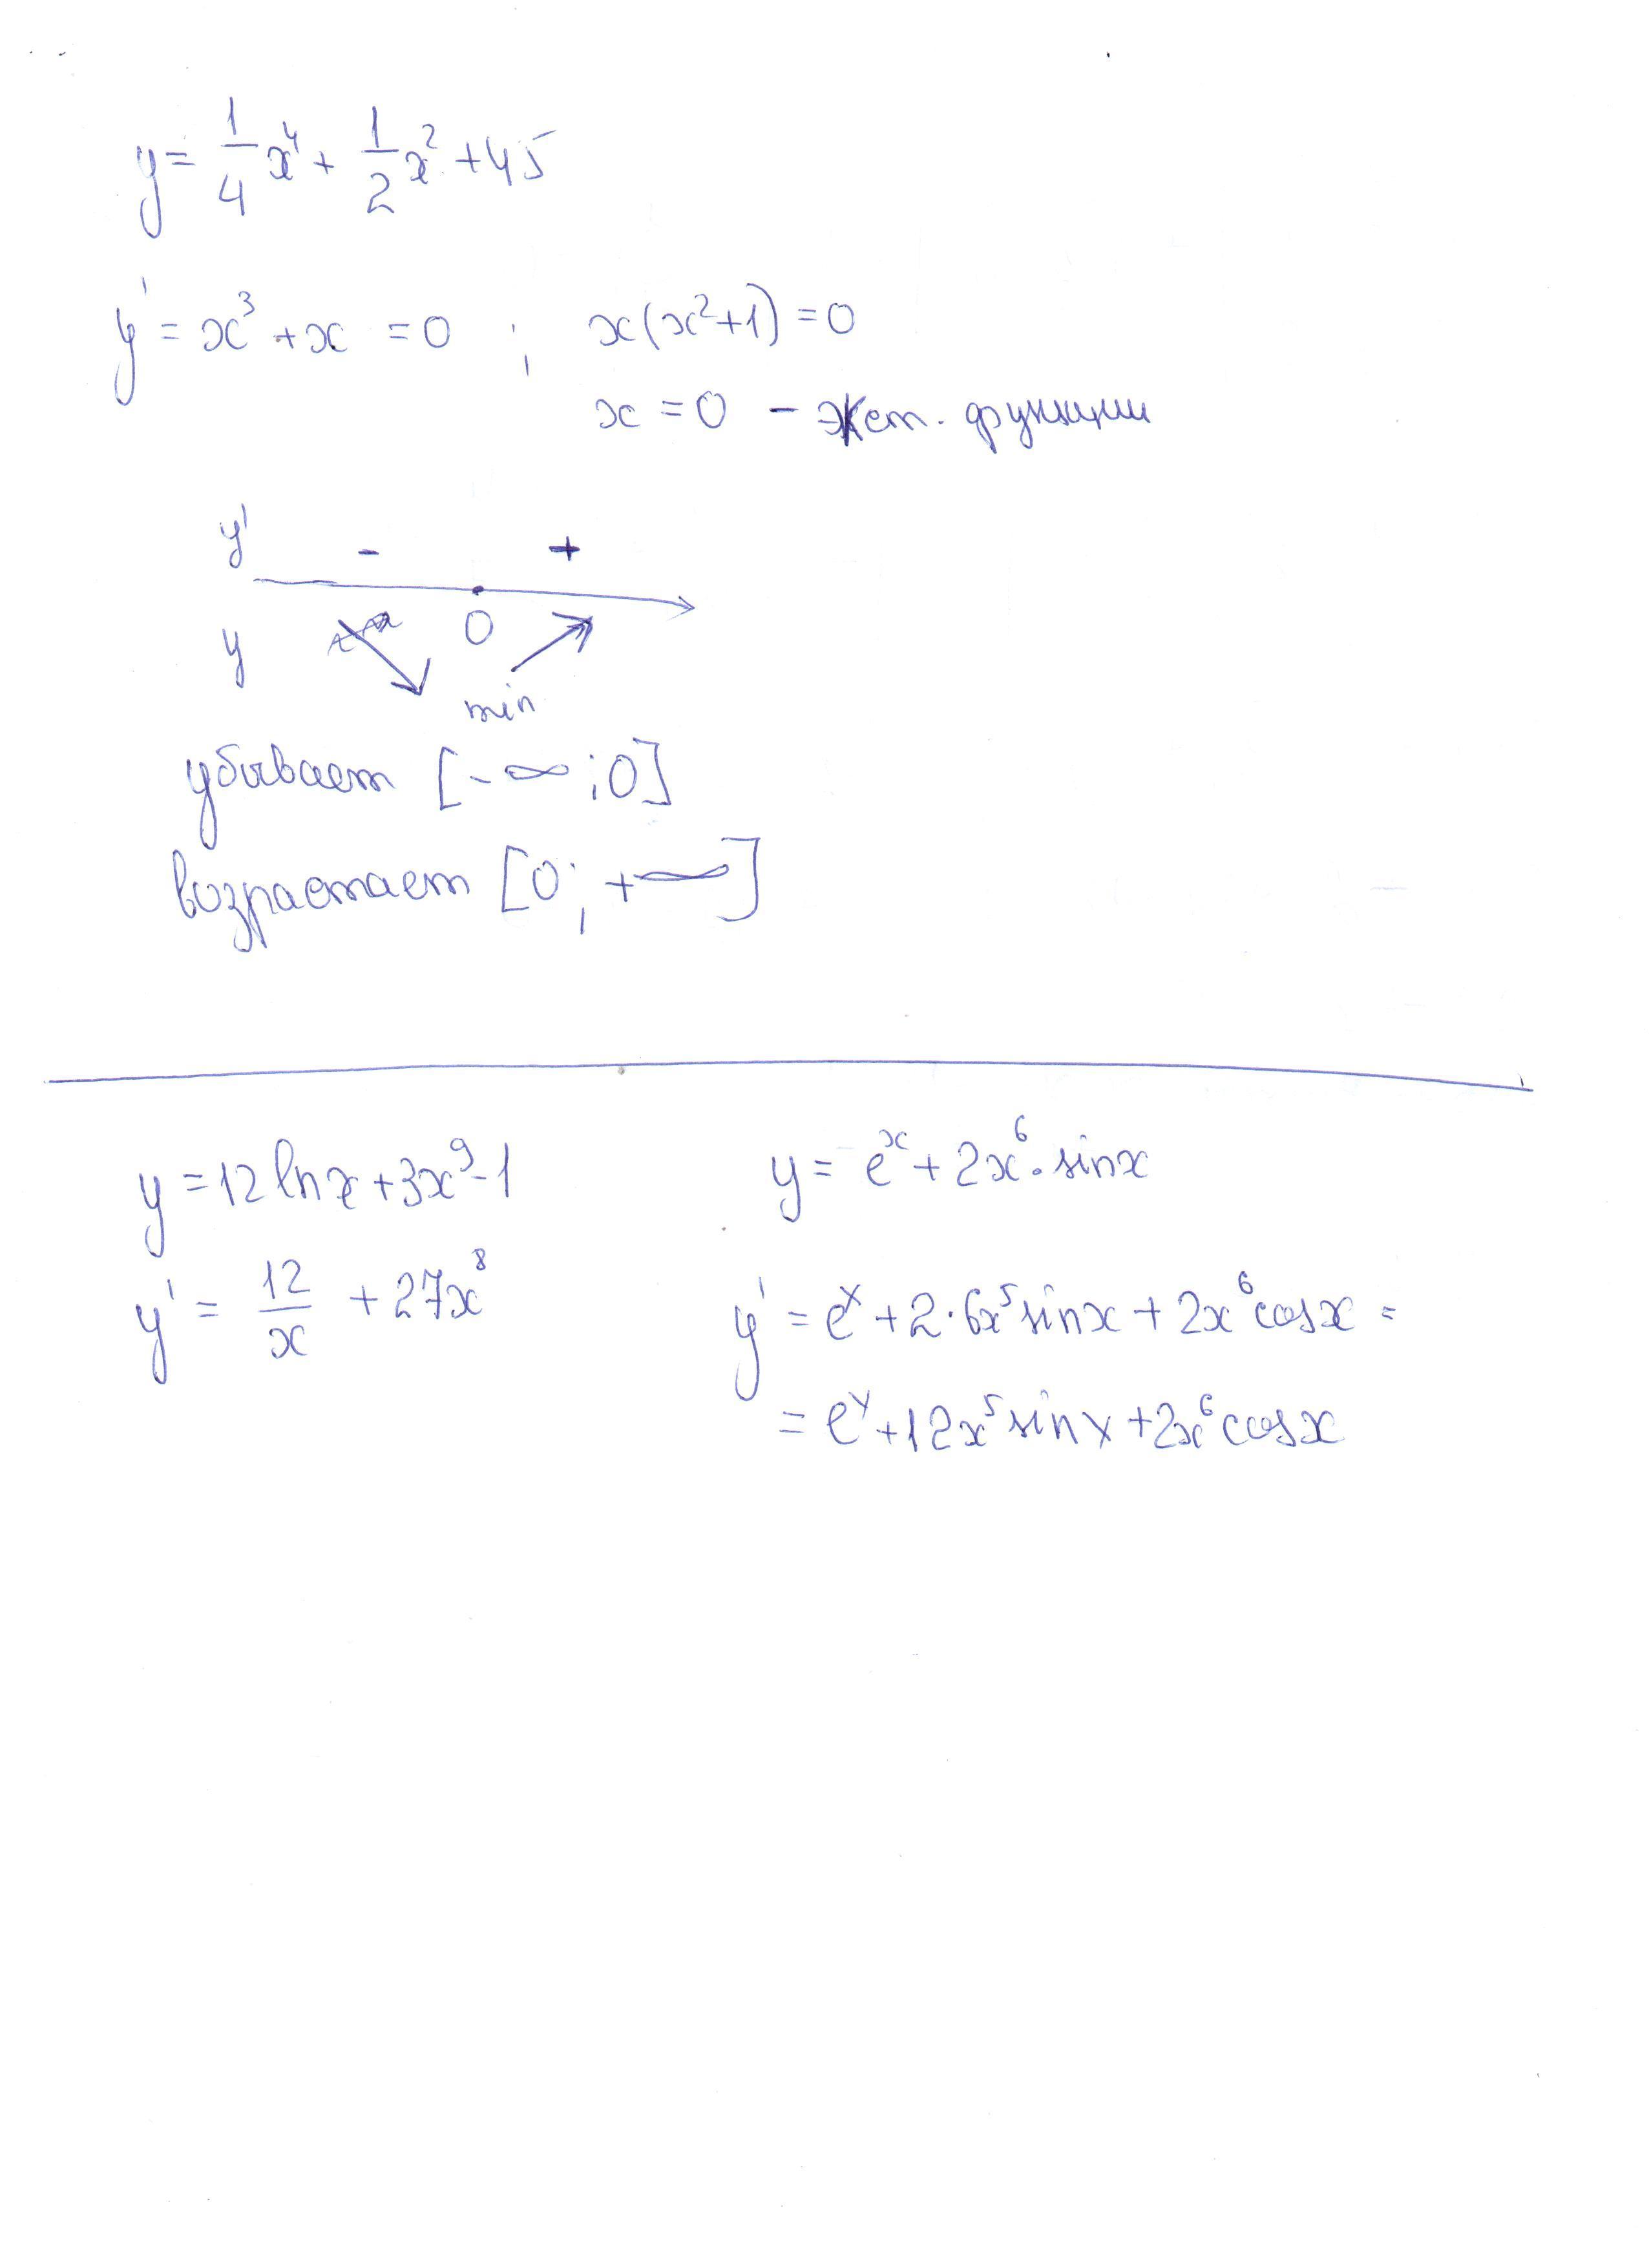 y = 1/4 x⁴ + 1/2 x² + 45
y' = x³ + x = 0 ; x(x²+1) = 0
x = 0 - экст. функции
y' - +
0
y
min
убывает [-∞ ; 0]
возрастает [0 ; +∞]
y = 12 ln x + 3x⁹ - 1
y' = 12/x + 27x⁸
y = eˣ + 2x⁶ · sin x
y' = eˣ + 2 · 6x⁵ sin x + 2x⁶ cos x =
= eˣ + 12x⁵ sin x + 2x⁶ cos x